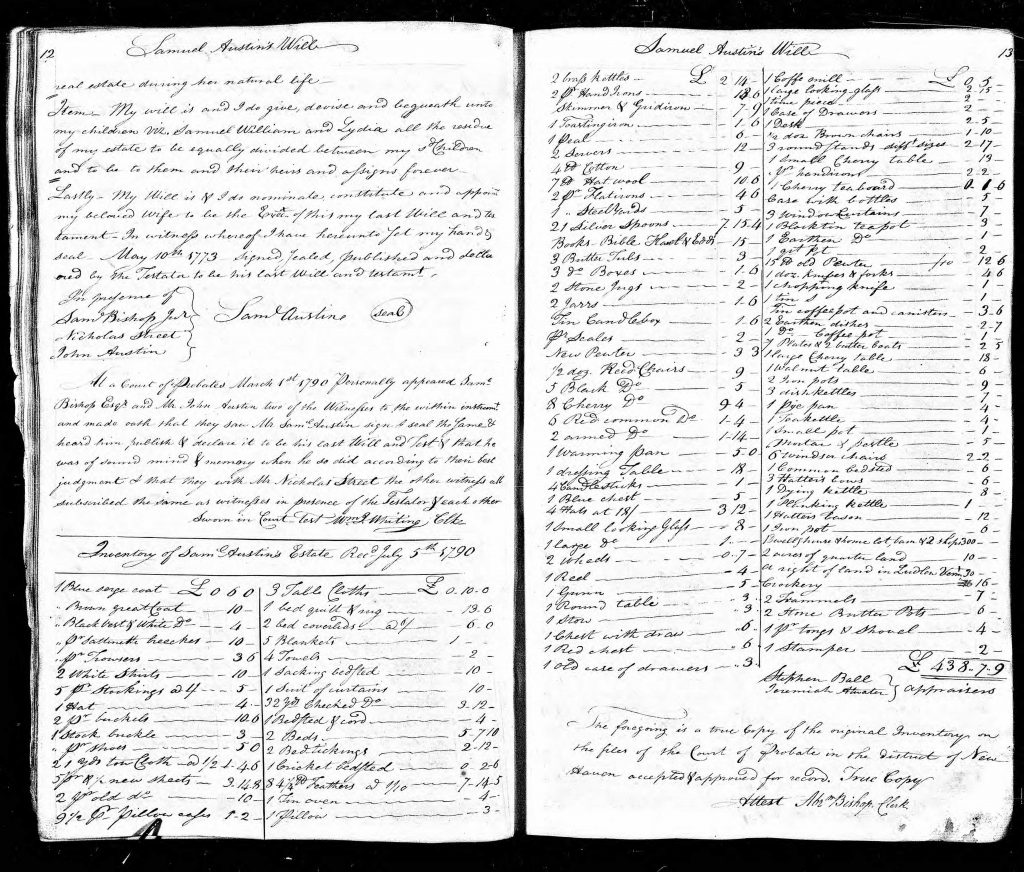 12
Samuel Austin's Will
real estate during her natural life
Item My will is and I do give, devise and bequeath unto
my children viz. Samuel William and Lydia all the residue
of my estate to be equally divided between my sd Children
and to be to them and their heirs and assigns forever
Lastly - My Will is & I do nominate, constitute and appoint
my beloved Wife to be the Extx of this my last Will and tes
tament - In witness whereof I have hereunto set my hand &
seal May 10th 1773 Signed Sealed, published and
by the Testator to be his last Will and testamt.
In presence of
Saml Bishop Jur
Nicholas Street
John Austin
Saml Austin
seal
At a Court of Probates March 1st 1790 Personally appeared Saml
Bishop Esqr and Mr. John Austin two of the Witnesses to the within instrumt
and made oath that they saw Mr. Saml Austin sign & seal the same &
heard him publish & declare it to be his last Will and Test & that he
was of sound mind & memory when he so did according to their best
judgment & that they with Mr. Nicholas Street the other witness all
subscribed the same as witnesses in presence of the Testator & each other
Sworn in Court Test Wm J. Whiting Clk
Inventory of Saml Austin's Estate Recd July 5th 1790
1 Blue serge coat £ 0 6 0
" Brown great Coat 10 -
" Black vest & White Do 4 -
" pr breeches 10 -
" pr Trowsers 3 6
2 White Shirts 10 -
5 pr Stockings a 1/ 5
1 Hat 4 -
2 pr buckets 10.0
1 Stock buckle 3 -
" pr shoes 5 0
21 yds tow Cloth a 1/2 1 - 4 6
5 pr & 1/2 new sheets 3.14.8
2 pr old do 10 -
9 1/2 pr Pillow cases 1 - 2 -
3 Table Cloths £ 0.10.0
1 bed quilt & rug 13.6
2 bed coverlids a 3/ 6.0
5 Blankets 1 -
4 Towels 2 -
1 Sacking bedsted 10 -
1 Suit of curtains 10 -
32 yds Checked Do 3.12 -
1 Bedsted & cord 4 -
2 Beds 5 - 7 10
2 Bedtickings 2 - 12 -
1 Cricket bedsted 0 2 - 6
8 4 1/2 lb Feathers a 1/10 7 - 14.5
1 Tin oven 4 -
1 Pillow 3 -
Samuel Austin's Will
13
2 brass kettles £ 2 14 -
2 pr Hand Irons 18 6
Skimmer & Gridiron 7 - 9
1 Toasting iron 1.6
1 Peal 6 -
2 Sewers 12 -
4 lb Cotton 9
7 lb Hat wool 10.6
2 pr Flatirons 4 6
1 " Steelyards 5 -
21 Silver Spoons 7.15.4
Books Bible 15
3 Butter Tubs 3
3 do Boxes 1.6
2 Stone Jugs 2 -
2 Jarrs 1.6
Tin Candlebox 1.6
pr Scales 2 -
New Pewter 3 3
1/2 doz Reed Chairs 9
5 Black Do 5
8 Cherry Do 2 4 -
6 Red common Do 1 - 4 -
2 armed do 1 - 14 -
1 Warming pan 5.0
1 dressing Table 18
4 Candlesticks 1 -
1 Blue chest 5 -
4 Hats at 18/ 3 12 -
1 Small looking Glass 8
1 large do 1 -
2 wheels 0.7 -
1 Reel 4 -
1 Gunn 5 -
1 Round table 3
1 Stow 3
1 Chest with draw 6
1 Red chest 6
1 old case of drawers 3
1 Coffe mill £ 0 5
1 large looking glass 2 15
1 time piece 2 -
1 Case of Drawers 2 -
1 Desk 2 5
1/2 doz Brown chairs 1 - 10 -
3 round stands difft sizes 2 - 17 -
1 Small Cherry table 13
pr handirons 2.2
1 Cherry teaboard 0.1 6
Case with bottles 5 -
3 Window curtains 7
1 Blacktin teapot 3
1 Earthen Do 1 -
1 qrt pot 2
15 lb old Pewter /10 12 6
1 doz knifes & forks 4 6
1 chopping knife 1 -
1 tin 1 -
Tin coffee pot and canisters 3 - 6
2 Earthen dishes 2 - 7
1 Do Coffee pot 1 -
7 Plates & 2 butter boats 2 5
1 large Cherry table 18 -
1 Walnut table 6
2 Iron pots 9
3 dish kettles 7
1 Pye pan 4
1 Teakettle 4
1 Small pot 1
Mortar & pestle 5
6 Windsor chairs 2 - 2
1 Common bedsted 6
3 Hatters bows 6
1 Dying kettle 8
1 Planking kettle 1 -
1 Hatters bason 12 -
1 Iron pot 6
Dwellg house & home lot, barn & 2 shops 300 -
2 acres of quarter land 10 -
a right of land in Ludlow Vermt 30 -
Crockery 16 -
2 Trammels 7 -
2 Stone Butter Pots 6
1 pr tongs & Shovel 4 -
1 Stamper 2 -
£ 438.7.9
Stephen Ball
Jeremiah Atwater
appraisers
The foregoing is a true Copy of the original Inventory on
the files of the Court of Probate in the district of New
Haven accepted & approved for record. True Copy
Attest Abrm Bishop, Clerk